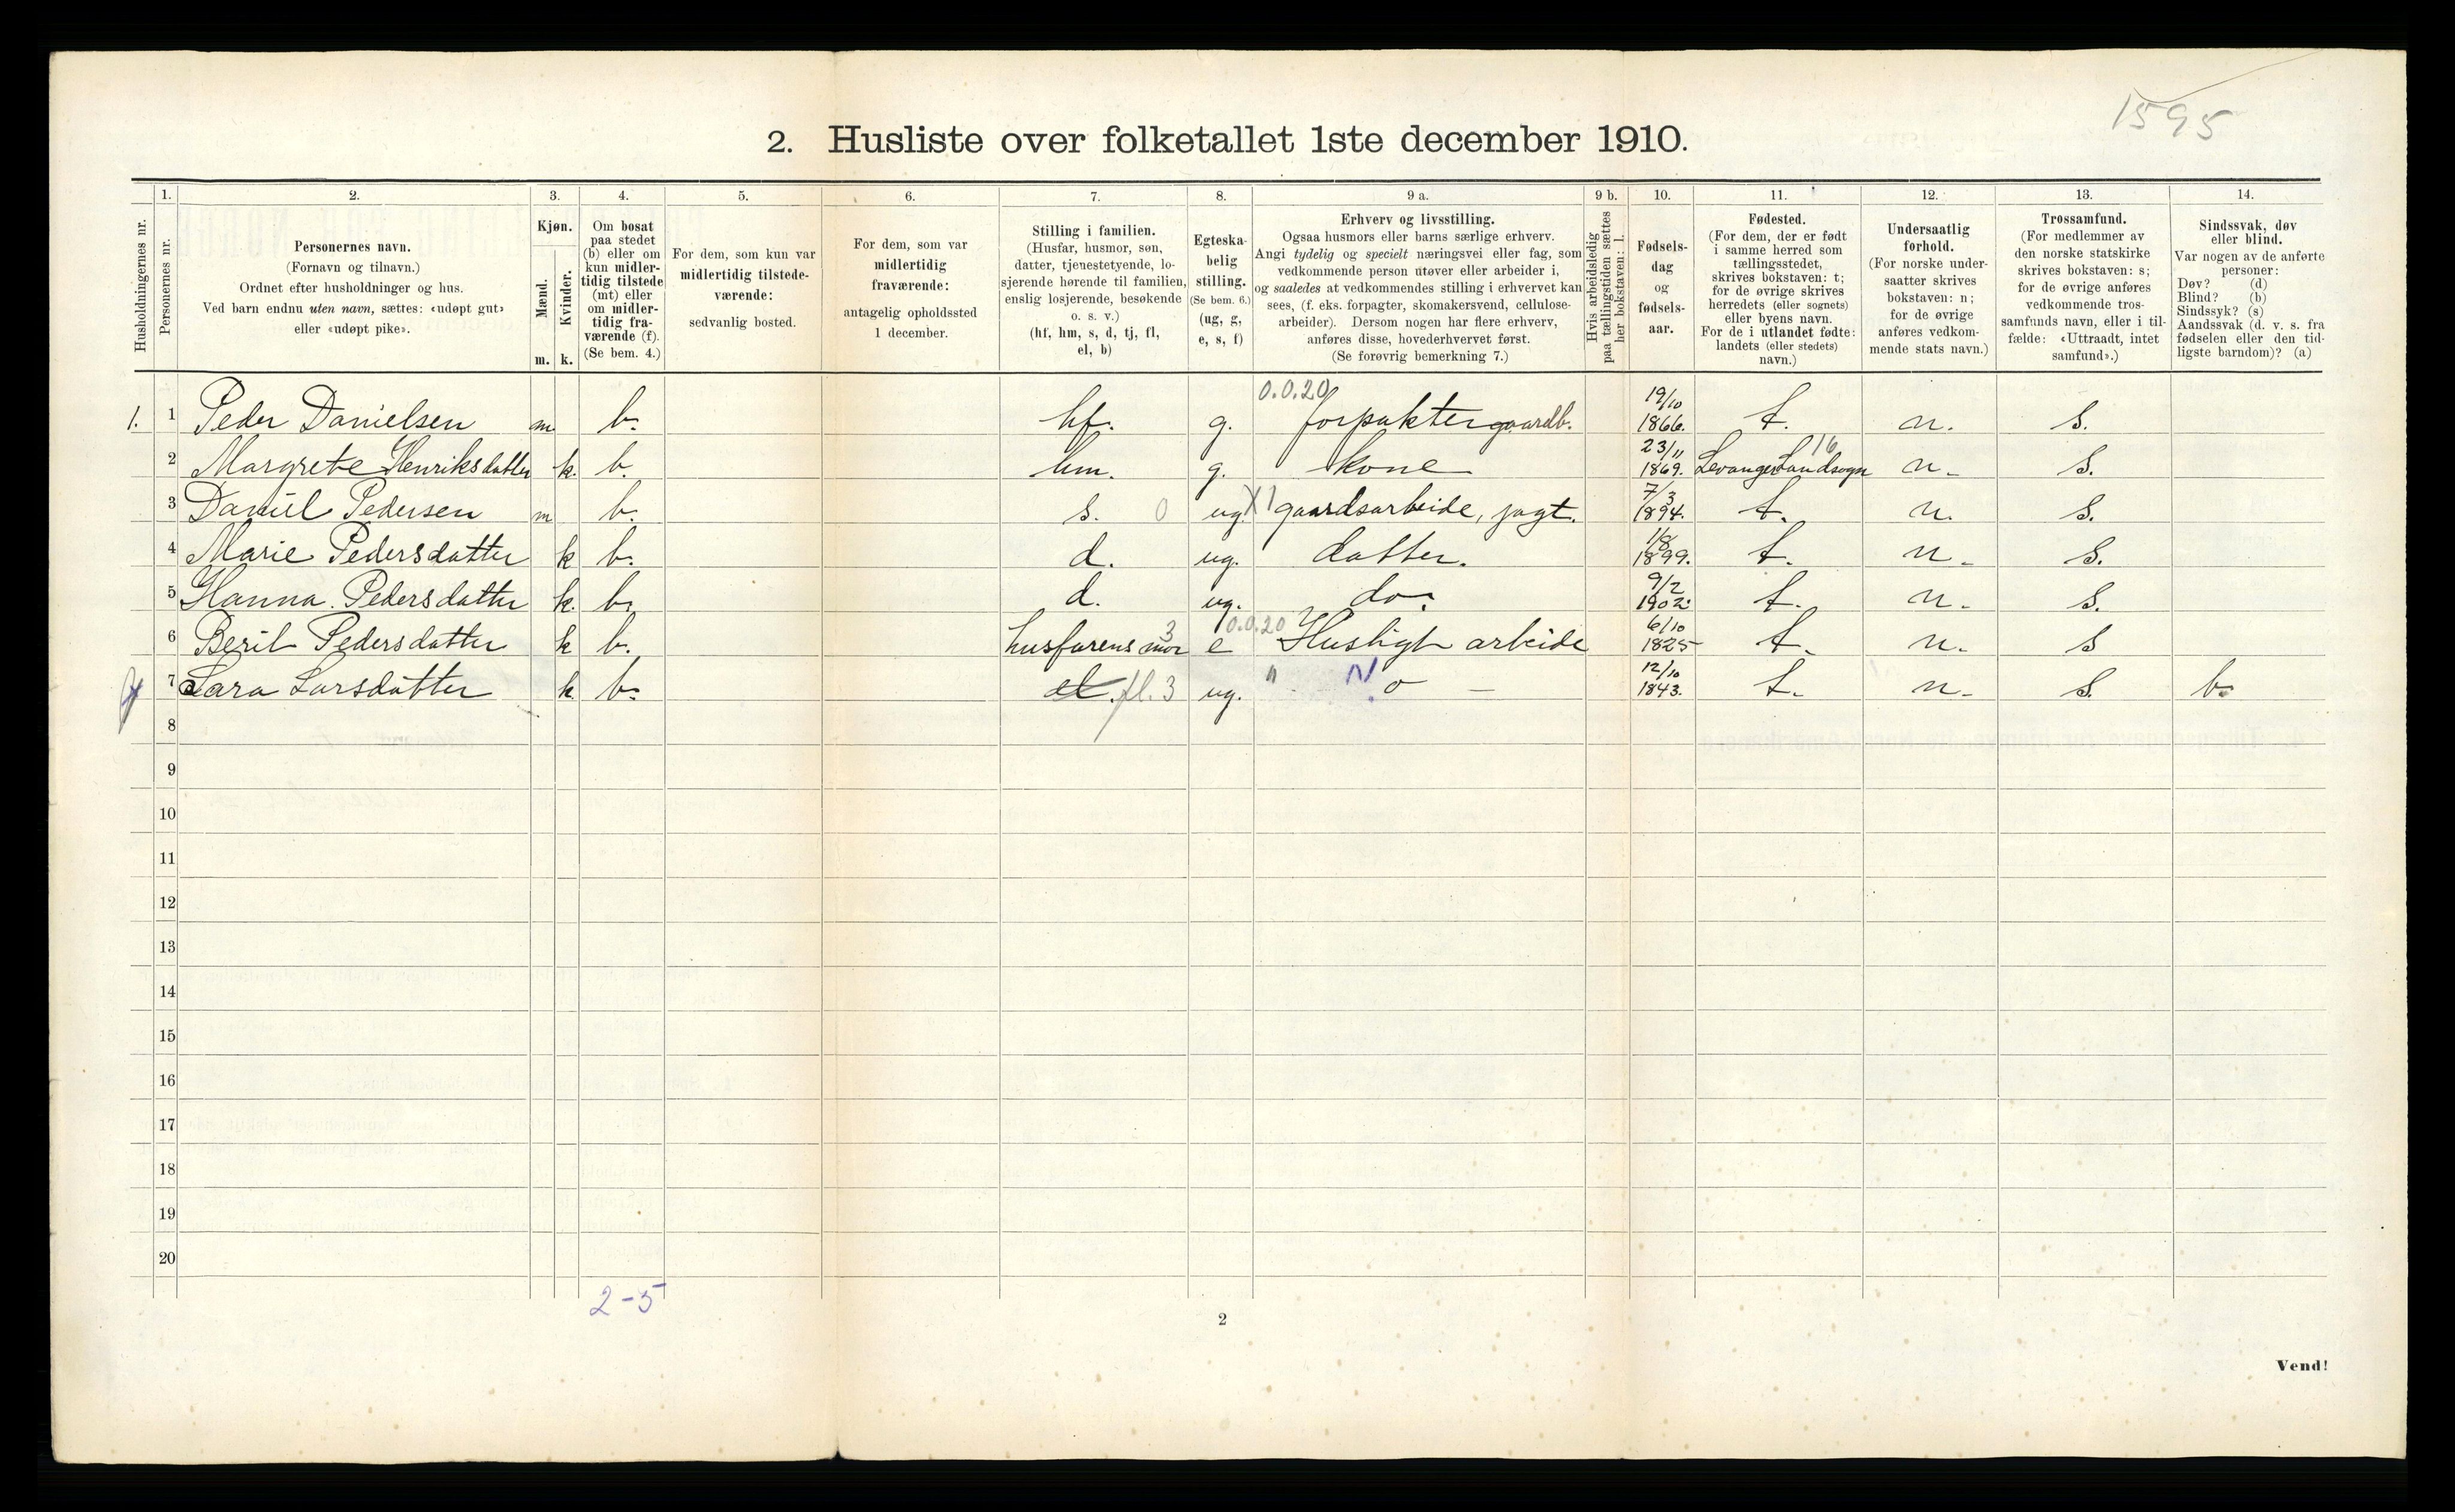 1595
2. Husliste over folketallet 1ste december 1910.
Husholdningernes nr.
1.
Personernes nr.
2.
Personernes navn.
(Fornavn og tilnavn.)
Ordnet efter husholdninger og hus.
Ved barn endnu uten navn, sættes: «udøpt gut»
eller «udøpt pike».
3.
Kjøn.
Mænd.
Kvinder.
m. k.
4.
Om bosat
paa stedet
(b) eller om
kun midler-
tidig tilstede
(mt) eller
om midler-
tidig fra-
værende (f).
(Se bem. 4.)
5.
For dem, som kun var
midlertidig tilstede-
værende:
sedvanlig bosted.
6.
For dem, som var
midlertidig
fraværende:
antagelig opholdssted
1 december.
7.
Stilling i familien.
(Husfar, husmor, søn,
datter, tjenestetyende, lo-
sjerende hørende til familien,
enslig losjerende, besøkende
o. s. v.)
(hf, hm, s, d, tj, fl,
el, b)
8.
Egteska-
belig
stilling.
(Se bem. 6.)
(ug, g,
e, s, f)
9 a.
Erhverv og livsstilling.
Ogsaa husmors eller barns særlige erhverv.
Angi tydelig og specielt næringsvei eller fag, som
vedkommende person utøver eller arbeider i,
og saaledes at vedkommendes stilling i erhvervet kan
sees, (f. eks. forpagter, skomakersvend, cellulose-
arbeider). Dersom nogen har flere erhverv,
anføres disse, hovederhvervet først.
(Se forøvrig bemerkning 7.)
9 b.
Hvis arbeidsledig
paa tællingstiden sættes
her bokstaven: l.
10.
Fødsels-
dag
og
fødsels-
aar.
11.
Fødested.
(For dem, der er født
i samme herred som
tællingsstedet,
skrives bokstaven: t;
for de øvrige skrives
herredets (eller sognets)
eller byens navn.
For de i utlandet fødte:
landets (eller stedets)
navn.)
12.
Undersaatlig
forhold.
(For norske under-
saatter skrives
bokstaven: n;
for de øvrige
anføres vedkom-
mende stats navn.)
13.
Trossamfund.
(For medlemmer av
den norske statskirke
skrives bokstaven: s;
for de øvrige anføres
vedkommende tros-
samfunds navn, eller i til-
fælde: «Uttraadt, intet
samfund».)
14.
Sindssvak, døv
eller blind.
Var nogen av de anførte
personer:
Døv? (d)
Blind? (b)
Sindssyk? (s)
Aandssvak (d. v. s. fra
fødselen eller den tid-
ligste barndom)? (a)
0.0.20
1. 1 Peder Danielsen m. b. hf. g. forpakter gaardb. 19/10 1866. t. n. s.
2 Margrete Henriksdatter k. b. hm. g. kone 23/11 1869. Levanger Landsogn 16 n. s.
3 Daniel Pedersen m b. s. 0 ug. X1 gaardsarbeide, jagt. 7/3 1894. t. n. s.
4 Marie Pedersdatter k b. d. ug. datter. 1/8 1899. t. n. s.
5 Hanna Pedersdatter k. b. d. ug. do. 9/2 1902. t. n. s.
6 Beril Pedersdatter k b. husfarens mor 3 e 0.0.20 Husligt arbeide 6/10 1825 t. n. s
7 Sara Larsdatter k b. el. fl. 3 ug. " N o — 12/10 1843. t. n. s. b.
8
9
10
11
12
13
14
15
16
17
18
19
20
2-5
2
Vend!